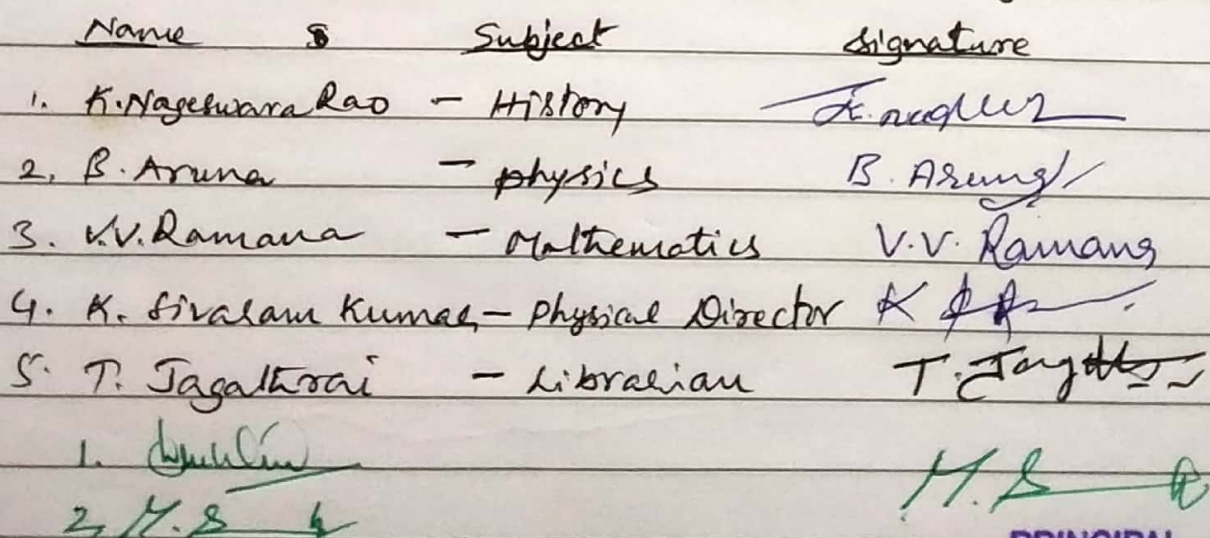 Name Subject Signature
1. K. Nageswara Rao - History
2. B. Aruna - physics B. Aruna
3. V.V. Ramana - Mathematics V.V. Ramana
4. K. Sivaram Kumar - Physical Director K
5. T. Jagathrai - Librarian T.
1.
2. M. S
PRINCIPAL